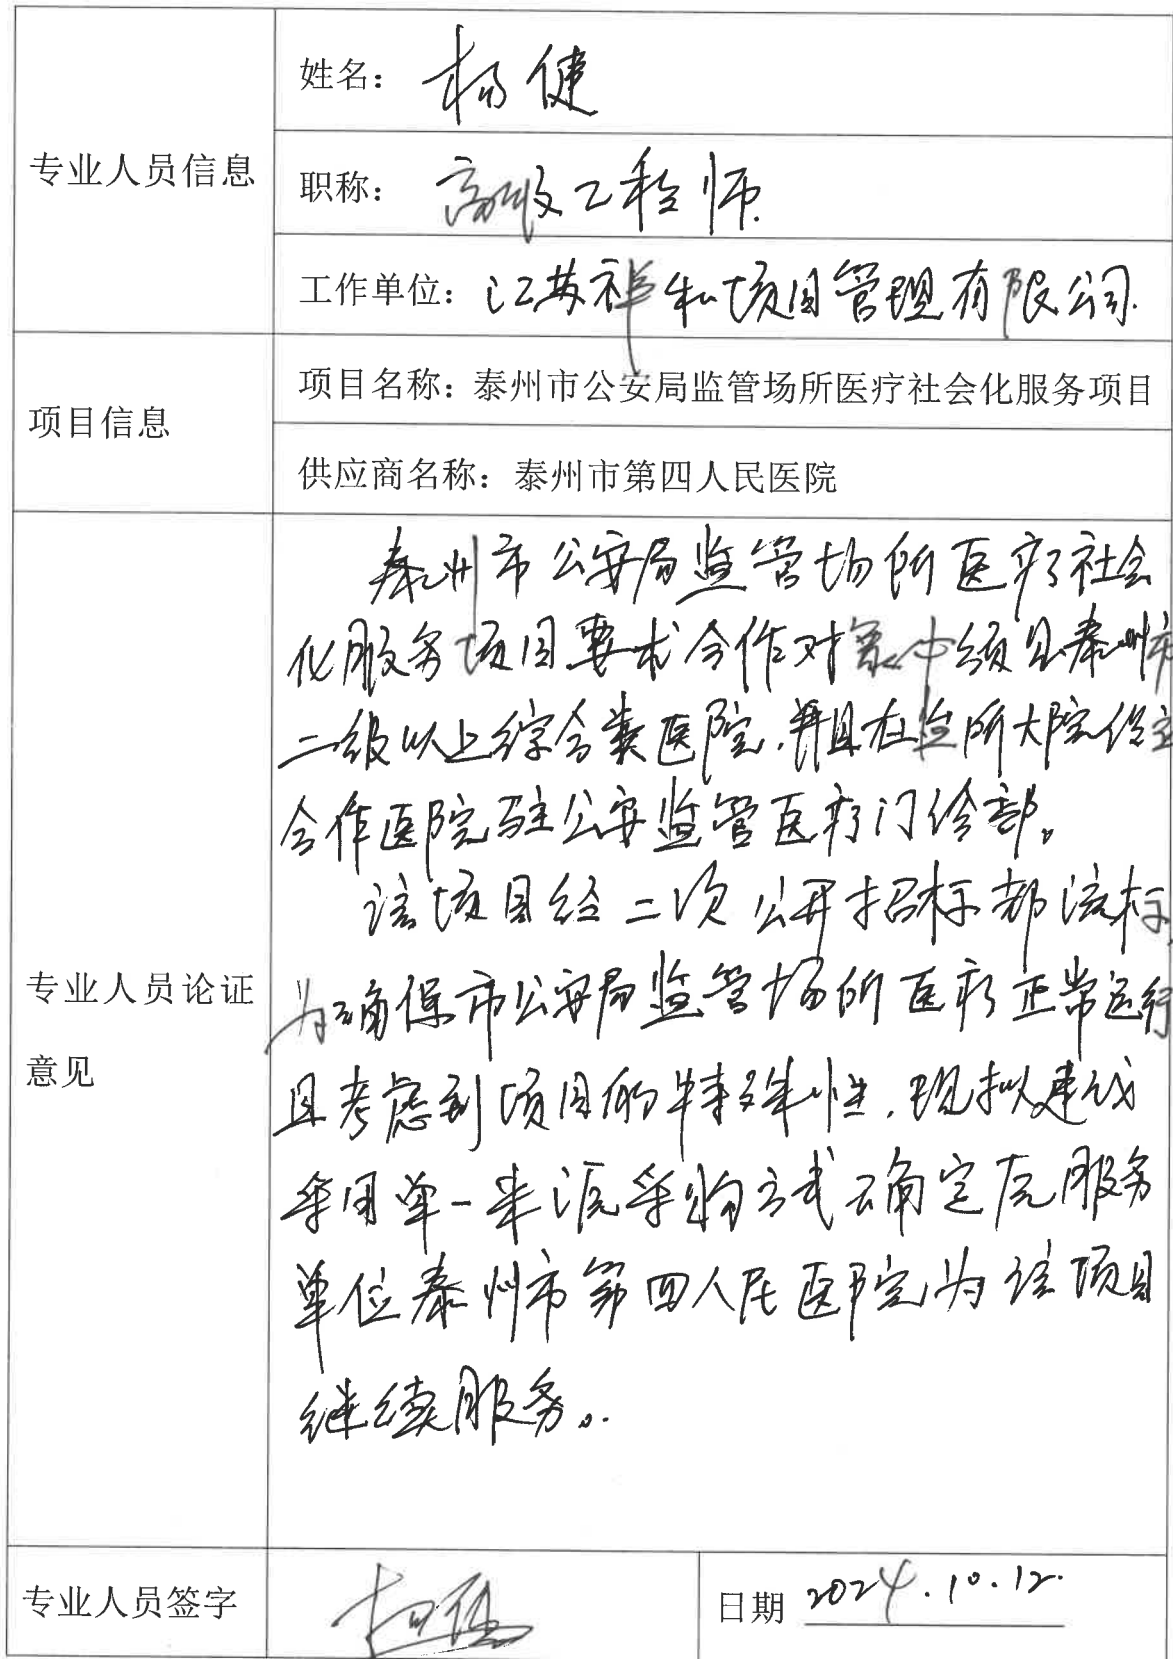 专业人员信息
姓名：杨健
职称：高级工程师
工作单位：江苏祥和项目管理有限公司
项目信息
项目名称：泰州市公安局监管场所医疗社会化服务项目
供应商名称：泰州市第四人民医院
专业人员论证
意见
泰州市公安局监管场所医疗社会
化服务项目要求合作对象必须是泰州市
二级以上综合类医院，并且在监所大院
合作医院驻公安监管医疗门诊部。
该项目经二次公开招标都流标，
为确保市公安局监管场所医疗正常运行
且考虑到项目的特殊性，现拟建议
采用单一来源采购方式确定原服务
单位泰州市第四人民医院为该项目
继续服务。
专业人员签字
杨健
日期 2024.10.12.